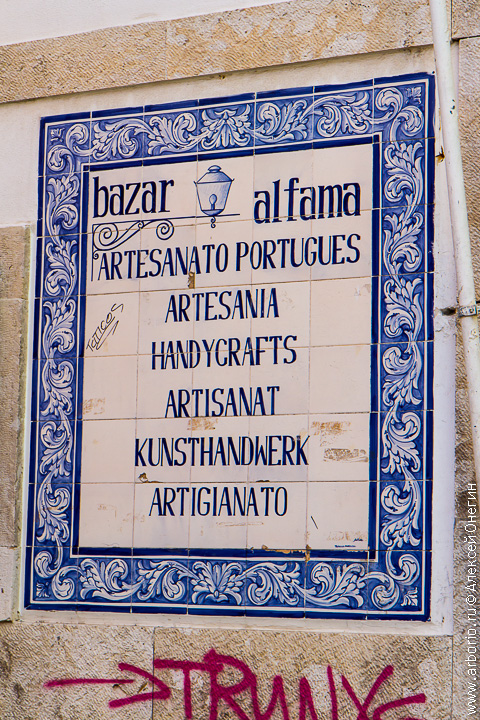 bazar alfama
ARTESANATO PORTUGUES
ARTESANIA
HANDYCRAFTS
ARTISANAT
KUNSTHANDWERK
ARTIGIANATO
www.arborio.ru © Алексей Онегин